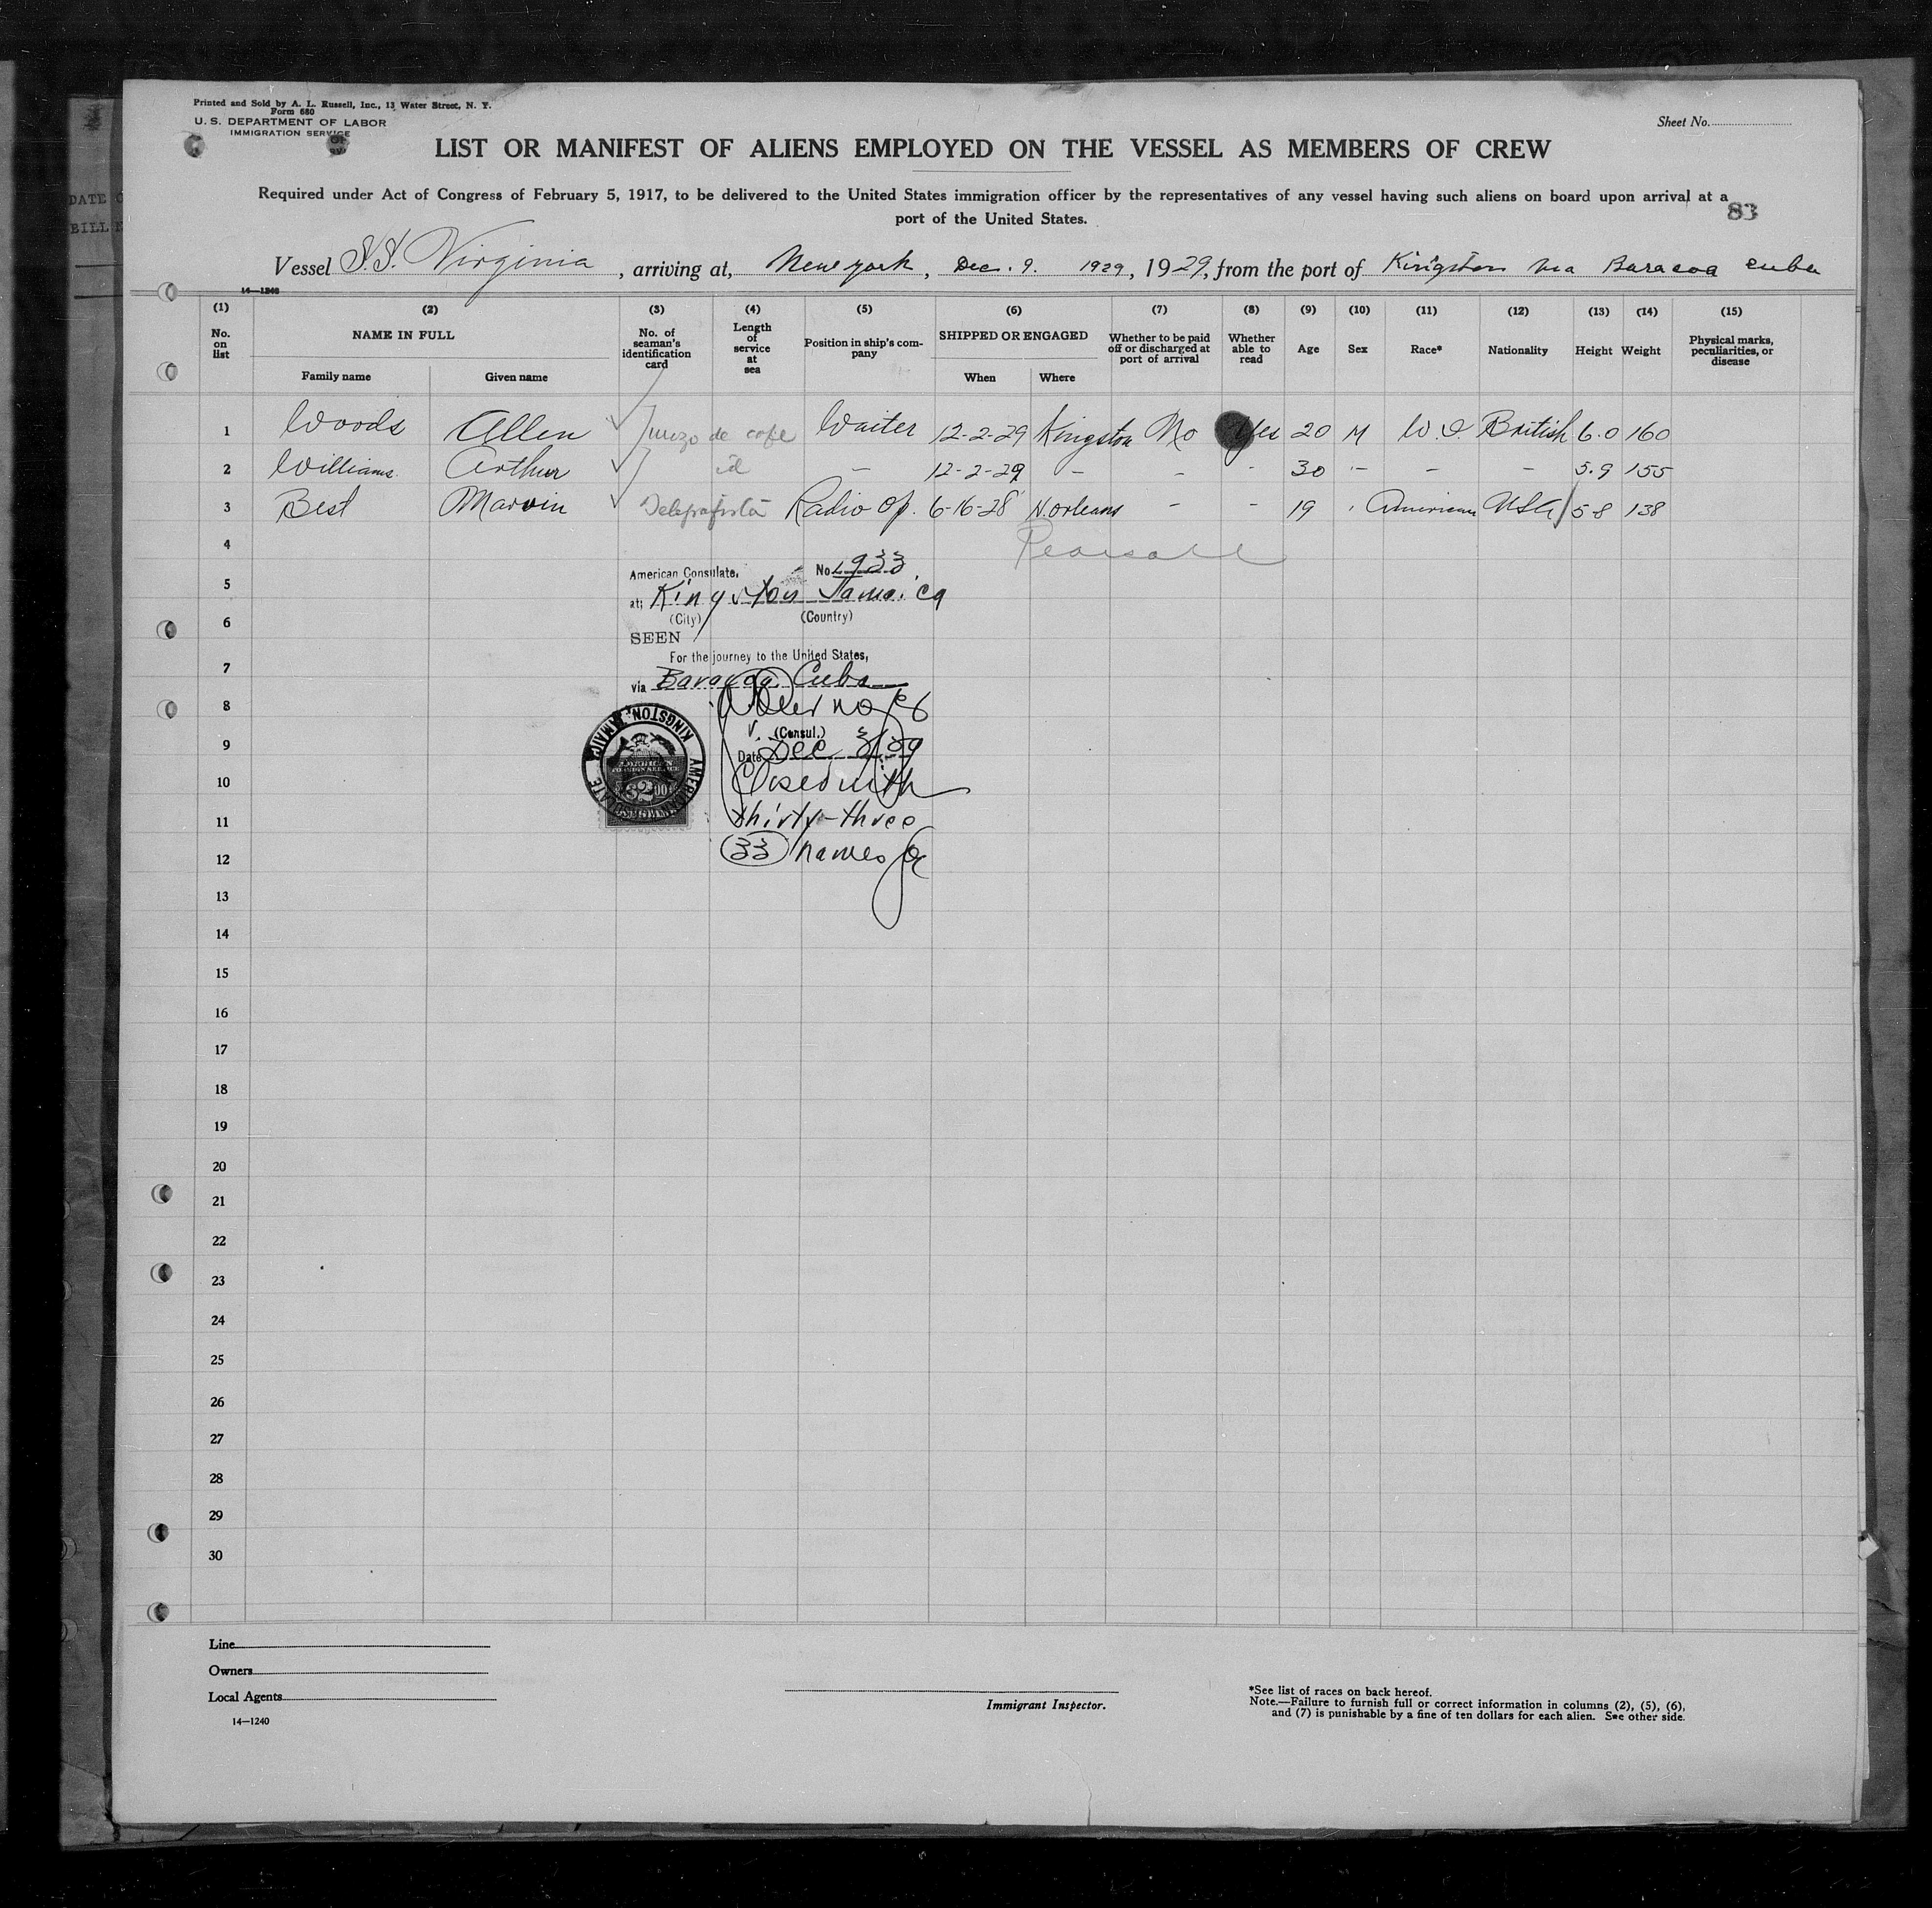 Printed and Sold by A. L. Russell, Inc., 13 Water Street, N. Y.
Form 680
U. S. DEPARTMENT OF LABOR
IMMIGRATION SERVICE
Sheet No.
LIST OR MANIFEST OF ALIENS EMPLOYED ON THE VESSEL AS MEMBERS OF CREW
Required under Act of Congress of February 5, 1917, to be delivered to the United States immigration officer by the representatives of any vessel having such aliens on board upon arrival at a
port of the United States.
83
DATE
BILL
Vessel S.S. Virginia, arriving at, New york, Dec. 9. 1929, 1929, from the port of Kingston via Baracoa Cuba
14—1240
(1) (2) (3) (4) (5) (6) (7) (8) (9) (10) (11) (12) (13) (14) (15)
No. on list
NAME IN FULL
Family name Given name
No. of seaman's identification card
Length of service at sea
Position in ship's company
SHIPPED OR ENGAGED
When Where
Whether to be paid off or discharged at port of arrival
Whether able to read
Age Sex Race* Nationality Height Weight
Physical marks, peculiarities, or disease
1 Woods Allen de cafe Waiter 12-2-29 Kingston No Yes 20 M W.I. British 6.0 160
2 Williams Arthur id — 12-2-29 — - - 30 - - - 5.9 155
3 Best Marvin Telegrafista Radio Op. 6-16-28 N. Orleans - - 19 American USA 5 8 138
4
American Consulate, No. 933
5
at: Kingston Jamaica
6
(City) (Country)
SEEN
For the journey to the United States,
7
via Baracoa Cuba
8
(Consul.)
9
Date Dec. 3/29
AMERICAN CONSULATE KINGSTON, JAMAICA
10
Closed with
11
thirty-three
12
(33) names
13
14
15
16
17
18
19
20
21
22
23
24
25
26
27
28
29
30
Line
Owners
Local Agents
14—1240
Immigrant Inspector.
*See list of races on back hereof.
Note.—Failure to furnish full or correct information in columns (2), (5), (6),
and (7) is punishable by a fine of ten dollars for each alien. See other side.